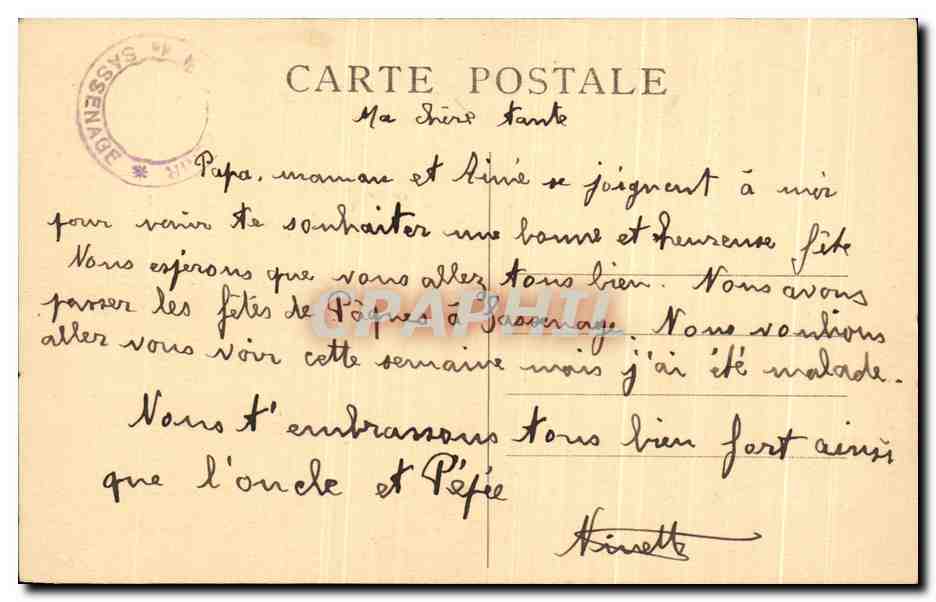 CARTE POSTALE
SASSENAGE *
Ma chère tante
Papa, maman et Aimé se joignent à moi
pour venir te souhaiter une bonne et heureuse fête
Nous esperons que vous allez tous bien. Nous avons
passer les fêtes de Pâques à Sassenage. Nous voulions
aller vous voir cette semaine mais j'ai été malade.
Nous t'embrassons tous bien fort ainsi
que l'oncle et Pépée
Ninette
CPAPHIL